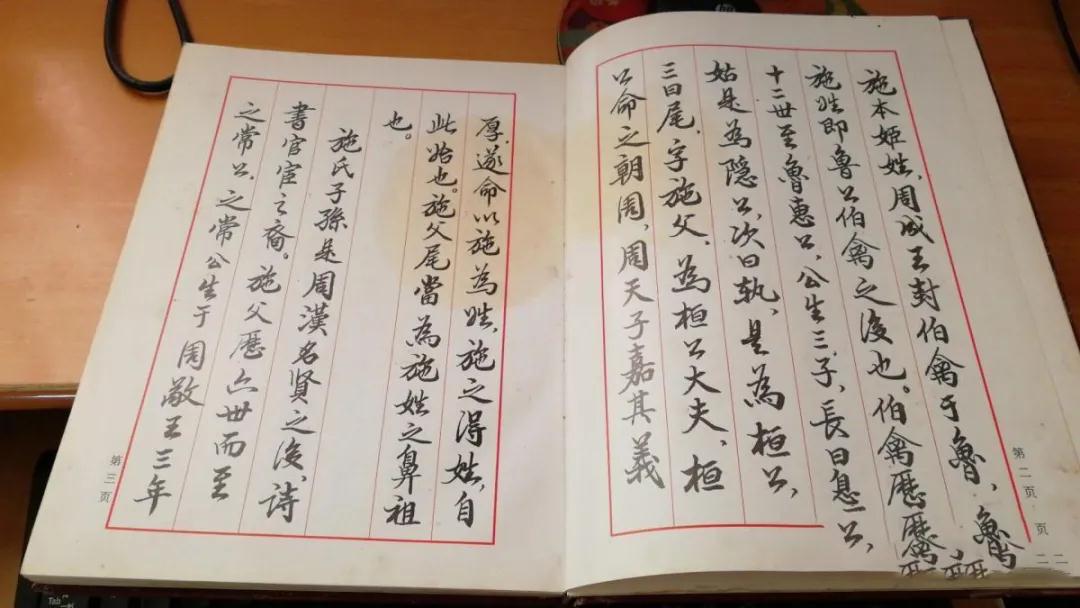 施本姬姓,周成王封伯禽于魯,魯
施姓即魯公伯禽之後也。伯禽歷
十二世至魯惠公,公生三子,長曰息公,
姑是為隱公,次曰軌,是為桓公,
三曰尾,字施父,為桓公大夫,桓
公命之朝周,周天子嘉其義
第二页
厚,遂命以施為姓,施之得姓,自
此始也。施父尾當為施姓之鼻祖
也。
施氏子孫是周漢名賢之後,詩
書官宦之裔。施父歷六世而至
之常公,之常公生于周敬王三年
第三页
Tab
hp